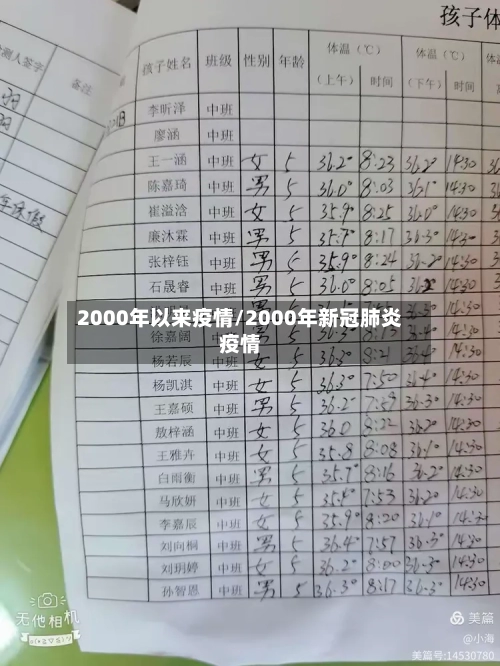 孩子体
测人签字
备注
孩子姓名 班级 性别 年龄 体温(℃) 体温(℃)
(上午) 时间 (下午) 时间
李昕泽 中班
廖涵 中班
王一涵 中班 女 5 36.2° 8:23 36.2° 14:30
陈嘉琦 中班 男 5 36.0° 8:03 36.1° 14:30
崔溢浛 中班 女 5 35.9° 8:25 36.0° 14:30
廉沐霖 中班 男 5 35.7° 8:17 36.3° 14:30
张梓钰 中班 男 5 35.9° 8:24 36.2° 14:30
石晟睿 中班 男 5 36.0° 8:05 36.2 14:30
2000年以来疫情/2000年新冠肺炎
疫情
徐嘉阔 中班
杨若辰 中班 女 5 36.3° 8:21 36.4° 14:30
杨凯淇 中班 女 5 36.3° 7:50 36.4° 14:30
王嘉硕 中班 男 5 36.2° 7:59 36.3° 14:30
敖梓涵 中班 女 5 36.0 8:22 36.2° 14:30
王雅卉 中班 女 5 35.8 8:08 36.1° 14:30
白雨衡 中班 男 5 35.7° 8:16 36.2° 14:30
马欣妍 中班 女 5 35.4° 7:53 36.2° 14:30
李嘉辰 中班 女 5 35.9° 8:20 36.1° 14:30
刘向桐 中班 男 5 36.4° 7:57 36.3° 14:30
刘玥婷 中班 女 5 36.2° 8:00 36.3° 14:30
孙智恩 中班 男 5 36.3° 8:17 36.3° 14:30
无他相机
美篇
@小海
美篇号:14530780